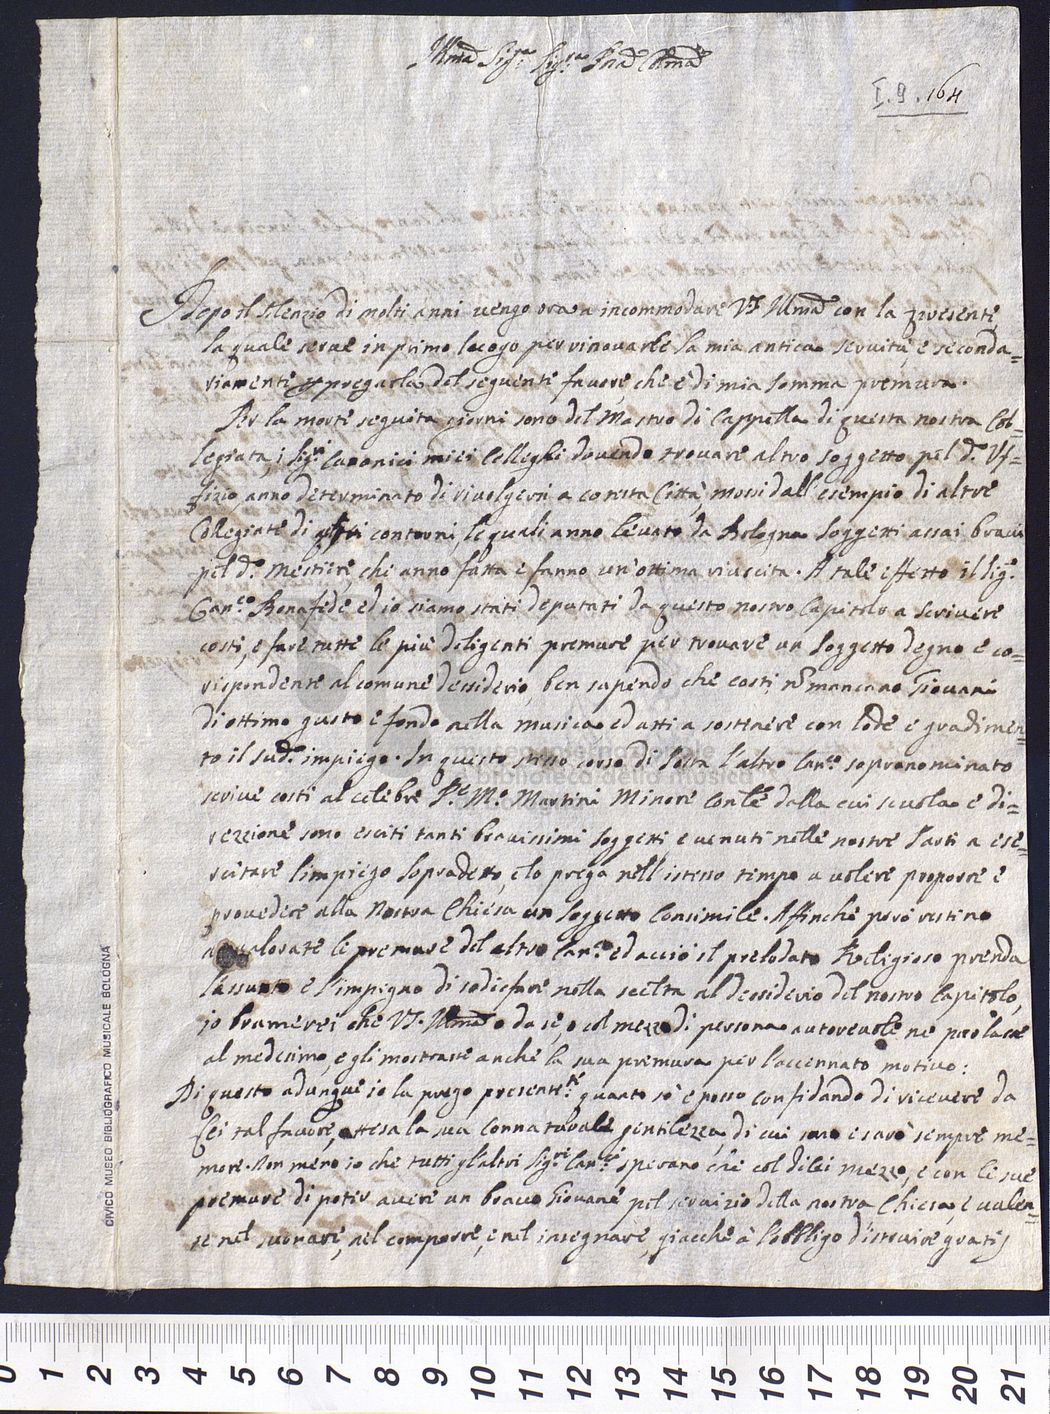 Illma Sigra Sigra Pna Colma
I.9.164
Dopo il silenzio di molti anni vengo ora a incommodare V.S. Illma con la presente,
la quale serve in primo luogo per rinovarle la mia antica servitù, e seconda=
riamente pregarla del seguente favore, che è di mia somma premura.
Per la morte seguita giorni sono del Mastro di Cappella di questa nostra Col=
legiata, i Sigri Canonici miei Colleghi dovendo trovare altro soggetto pel do. Uf=
fizio, anno determinato di rivolgersi a cotesta Città, mossi dall'esempio di altre
Collegiate di questi contorni, le quali anno levato da Bologna soggetti assai bravi
pel do. mestiere che anno fatta e fanno un'ottima riuscita. A tale effetto il Sigr.
Canco. Bonafede ed io siamo stati deputati da questo nostro Capitolo a scrivere
costì, e fare tutte le più deligenti premure per trovare un soggetto degno e co=
rispondente al comune dessiderio, ben sapendo che costì no mancano Giovani
di ottimo gusto e fondo nella musica ed atti a sostenere con lode e gradimen=
to il sudo. impiego. In questo stesso corso di Posta l'altro Canco. sopranominato
scrive costì al celebre Pre. Mo. Martini Minore Conle. dalla cui scuola e di=
rezzione sono esciti tanti bravissimi soggetti e venuti nelle nostre Parti a ese=
rcitare l'impiego sopradetto, e lo prega nell'istesso tempo a volere proporre e
provedere alla Nostra Chiesa un soggetto consimile. Affinchè però restino
avvalorate le premure del altro Canco. ed acciò il prelodato Religioso prenda
l'assunto e l'impegno di sodisfare nella scelta al dessiderio del nostro Capitolo,
io bramerei che V.S. Illma o da sè, o col mezzo di persona autorevole ne parlasse
al medesimo, e gli mostrasse anche la sua premura per l'accennato motivo:
Di questo adunque io la prego presentte. quanto sò e posso confidando di ricevere da
Lei tal favore, attesa la sua connaturale gentilezza, di cui sono e sarò sempre me=
more. Non meno io che tutti gl'altri Sigri Canci sperano che col di lei mezzo, e con le sue
premure di poter avere un bravo Giovane pel servizio della nostra Chiesa, e valen=
te nel suonare, nel comporre, e nel insegnare, giacchè à l'obbligo d'istruire gratis
museo internazionale
e biblioteca della musica
CIVICO MUSEO BIBLIOGRAFICO MUSICALE BOLOGNA
0 1 2 3 4 5 6 7 8 9 10 11 12 13 14 15 16 17 18 19 20 21